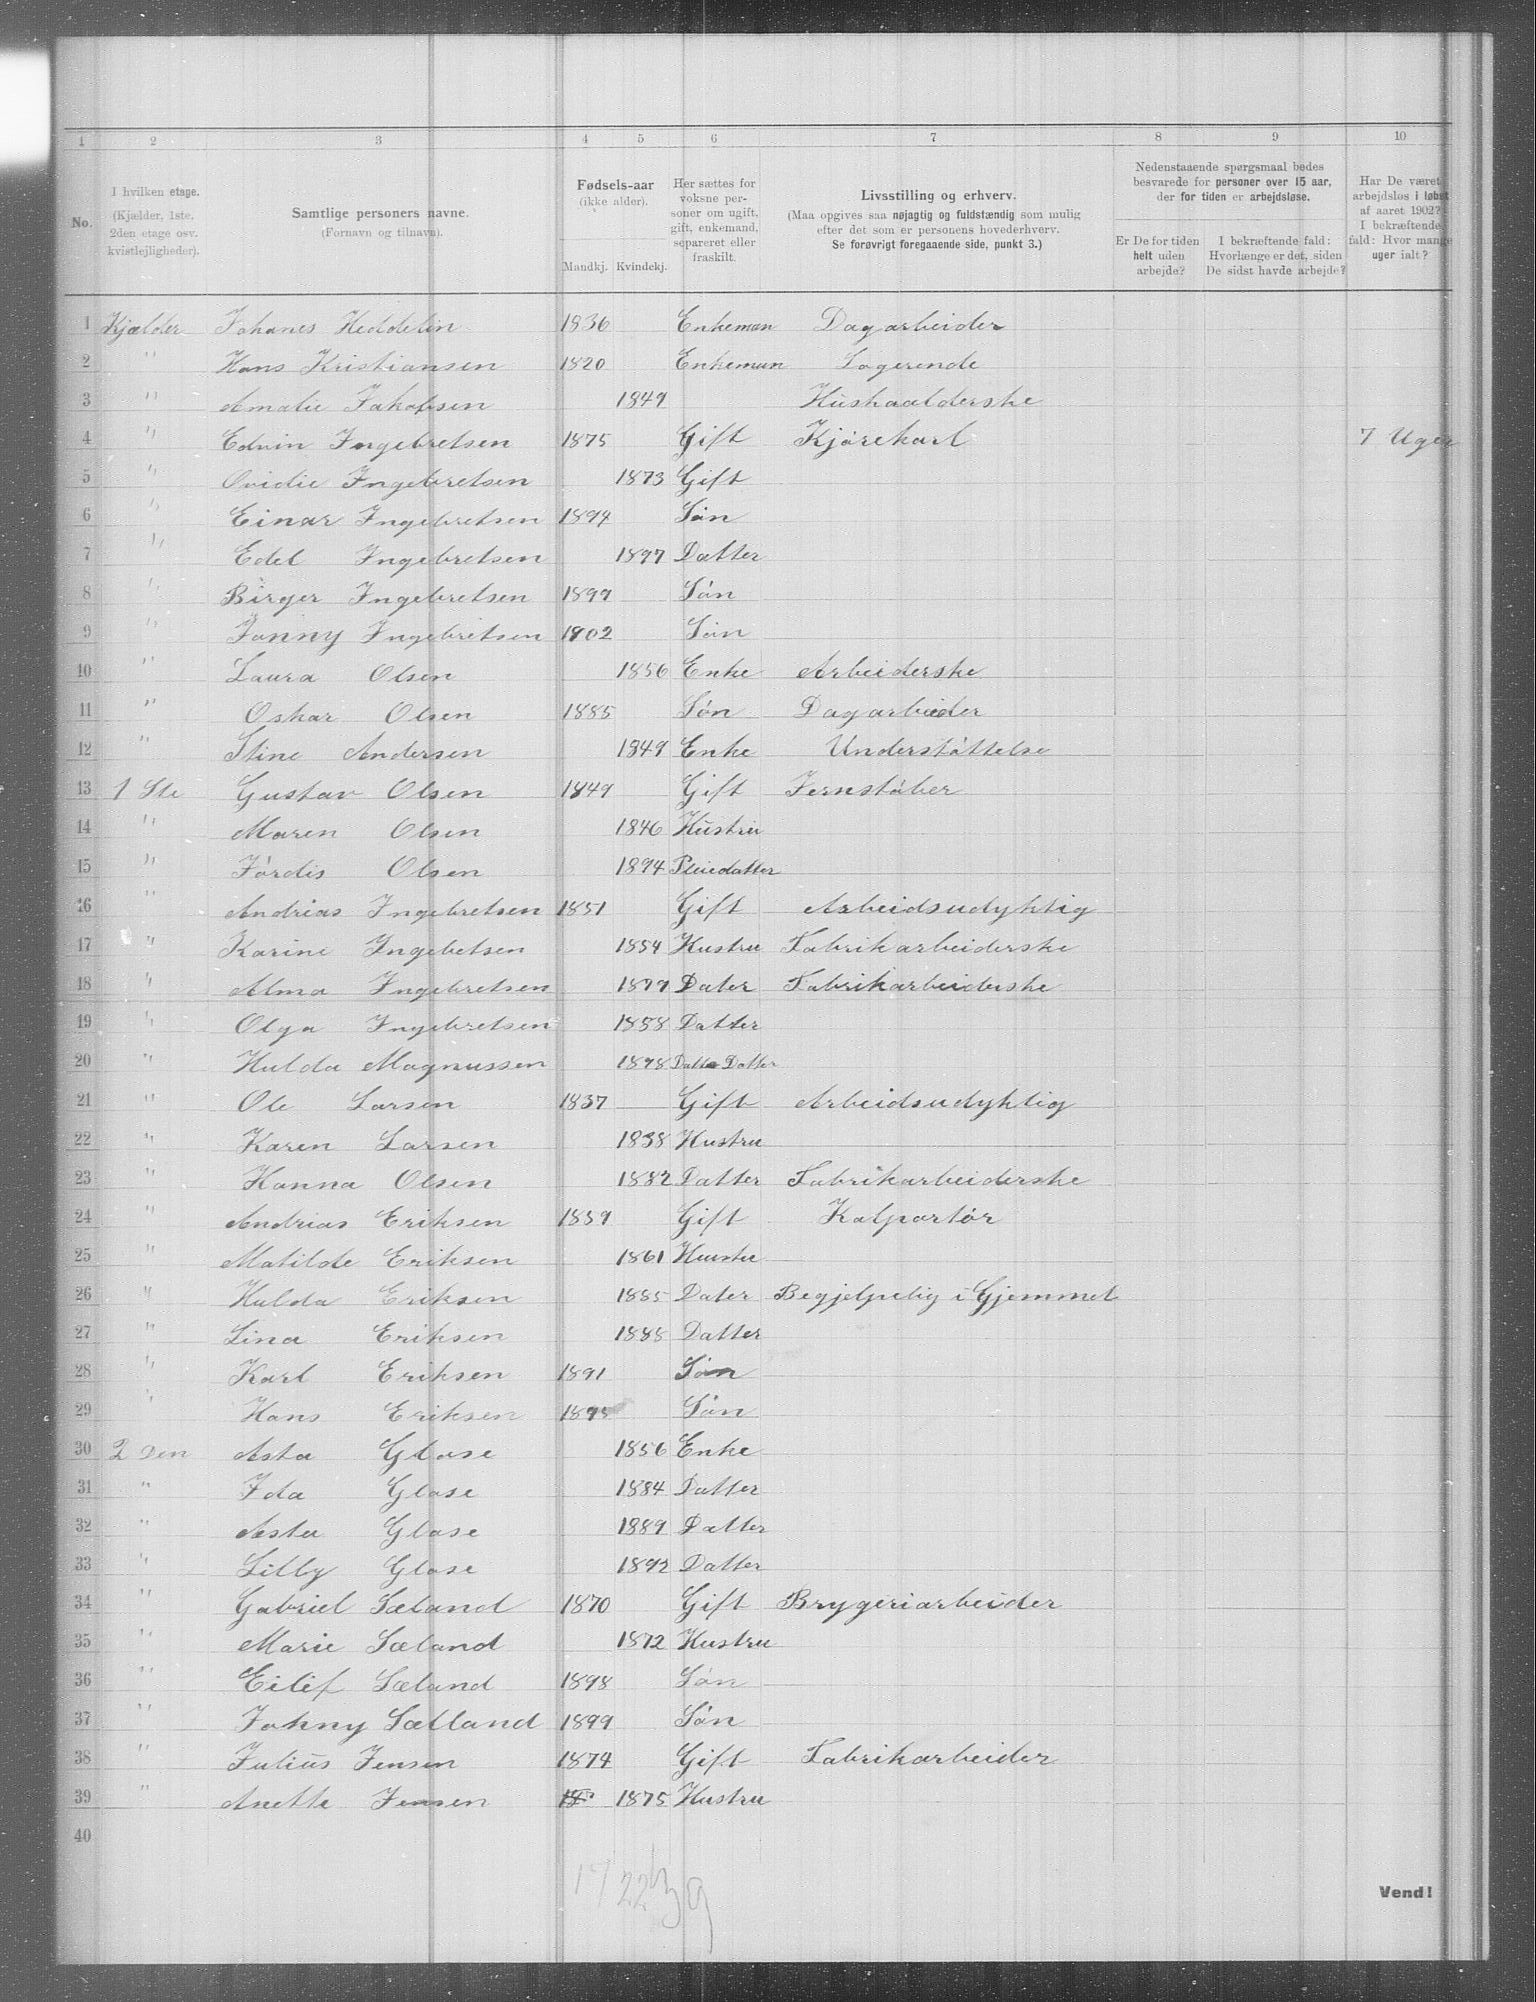 1 2 3 4 5 6 7 8 9 10
No.
I hvilken etage. (Kjælder, 1ste. 2den etage osv. kvistlejligheder).
Samtlige personers navne. (Fornavn og tilnavn).
Fødsels-aar (ikke alder). Mandkj. Kvindekj.
Her sættes for voksne personer om ugift, gift, enkemand, separeret eller fraskilt.
Livsstilling og erhverv. (Maa opgives saa nøjagtig og fuldstændig som mulig efter det som er personens hovederhverv. Se forøvrigt foregaaende side, punkt 3.)
Nedenstaaende spørgsmaal bedes besvarede for personer over 15 aar, der for tiden er arbejdsløse.
Er De for tiden helt uden arbejde?
I bekræftende fald: Hvorlænge er det, siden De sidst havde arbejde?
Har De været arbejdsløs i løbet af aaret 1902? I bekræftende fald: Hvor mange uger ialt?
1 Kjælder Johanes Heddelin 1836 Enkeman Dagarbeider
2 " Hans Kristiansen 1820 Enkeman Logerende
3 " Amalie Jakobsen 1849 Hushaalderske
4 " Edvin Ingebretsen 1875 Gift Kjørekarl 7 Uger
5 " Ovidie Ingebretsen 1873 Gift
6 " Einar Ingebretsen 1894 Søn
7 " Edel Ingebretsen 1897 Datter
8 " Birger Ingebretsen 1899 Søn
9 " Jonny Ingebritsen 1902 Søn
10 " Laura Olsen 1856 Enke Arbeiderske
11 " Oskar Olsen 1885 Søn Dagarbeider
12 " Stine Andersen 1849 Enke Understøttelse
13 1 Ste Gustav Olsen 1849 Gift Jernstøber
14 " Maren Olsen 1846 Hustru
15 " Jørdis Olsen 1894 Pleiedatter
16 " Andrias Ingebretsen 1851 Gift Arbeidsudyktig
17 " Karine Ingebetsen 1854 Hustru Fabrikarbeiderske
18 " Alma Ingebretsen 1879 Dater Fabrikarbeiderske
19 " Olga Ingebretsen 1888 Datter
20 " Hulda Magnussen 1898 Datte Datter
21 " Ole Larsen 1837 Gift Arbeidsudyktig
22 " Karen Larsen 1838 Hustru
23 " Hanna Olsen 1882 Datter Fabrikarbeiderske
24 " Andrias Eriksen 1859 Gift Kalportør
25 " Matilde Eriksen 1861 Hustu
26 " Hulda Eriksen 1885 Dater Begjelpelig i Gjemmet
27 " Lina Eriksen 1888 Datter
28 " Karl Eriksen 1891 Søn
29 " Hans Eriksen 1895 Søn
30 2 Den Asta Glase 1856 Enke
31 " Ida Glase 1884 Datter
32 " Asta Glase 1889 Datter
33 " Lilly Glase 1892 Datter
34 " Gabriel Sæland 1870 Gift Brygeriarbeider
35 " Marie Sæland 1872 Hustru
36 " Eilif Sæland 1898 Søn
37 " Johny Sælland 1899 Søn
38 " Julius Jensen 1874 Gift Fabrikarbeider
39 " Anette Jensen 18 1875 Hustru
40
17/22 39
Vend!